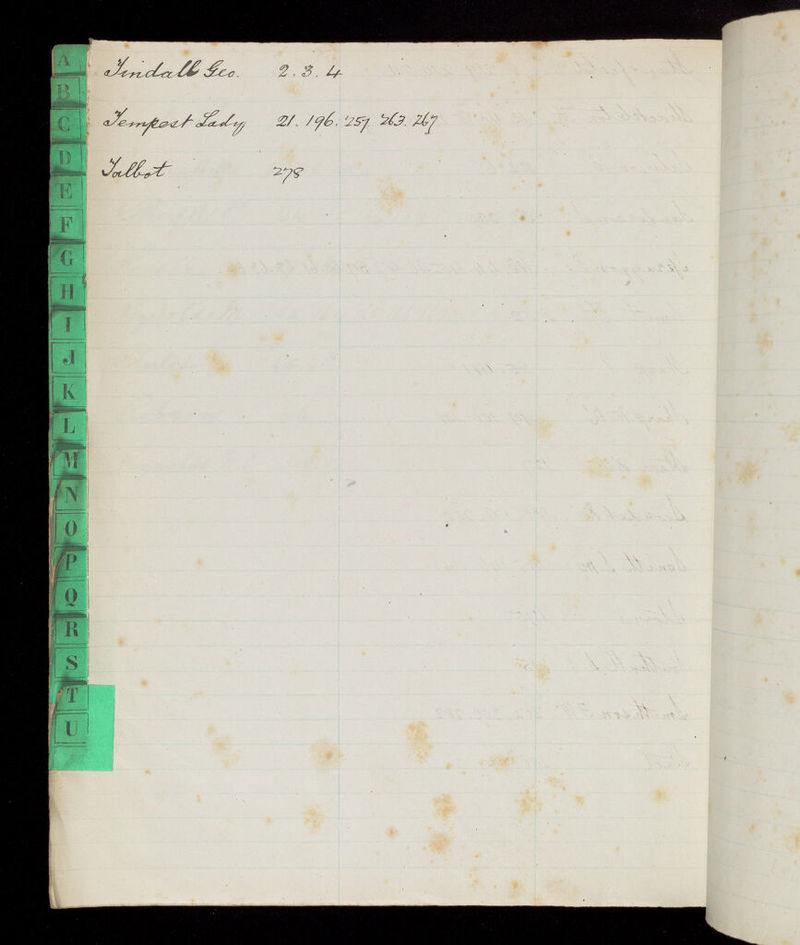 A
B
C
D
E
F
G
H
I
J
K
L
M
N
O
P
Q
R
S
T
U
Tindall Geo. 2. 3. 4
Tempest Lady 21. 196. 257. 263. 267
Talbot 278